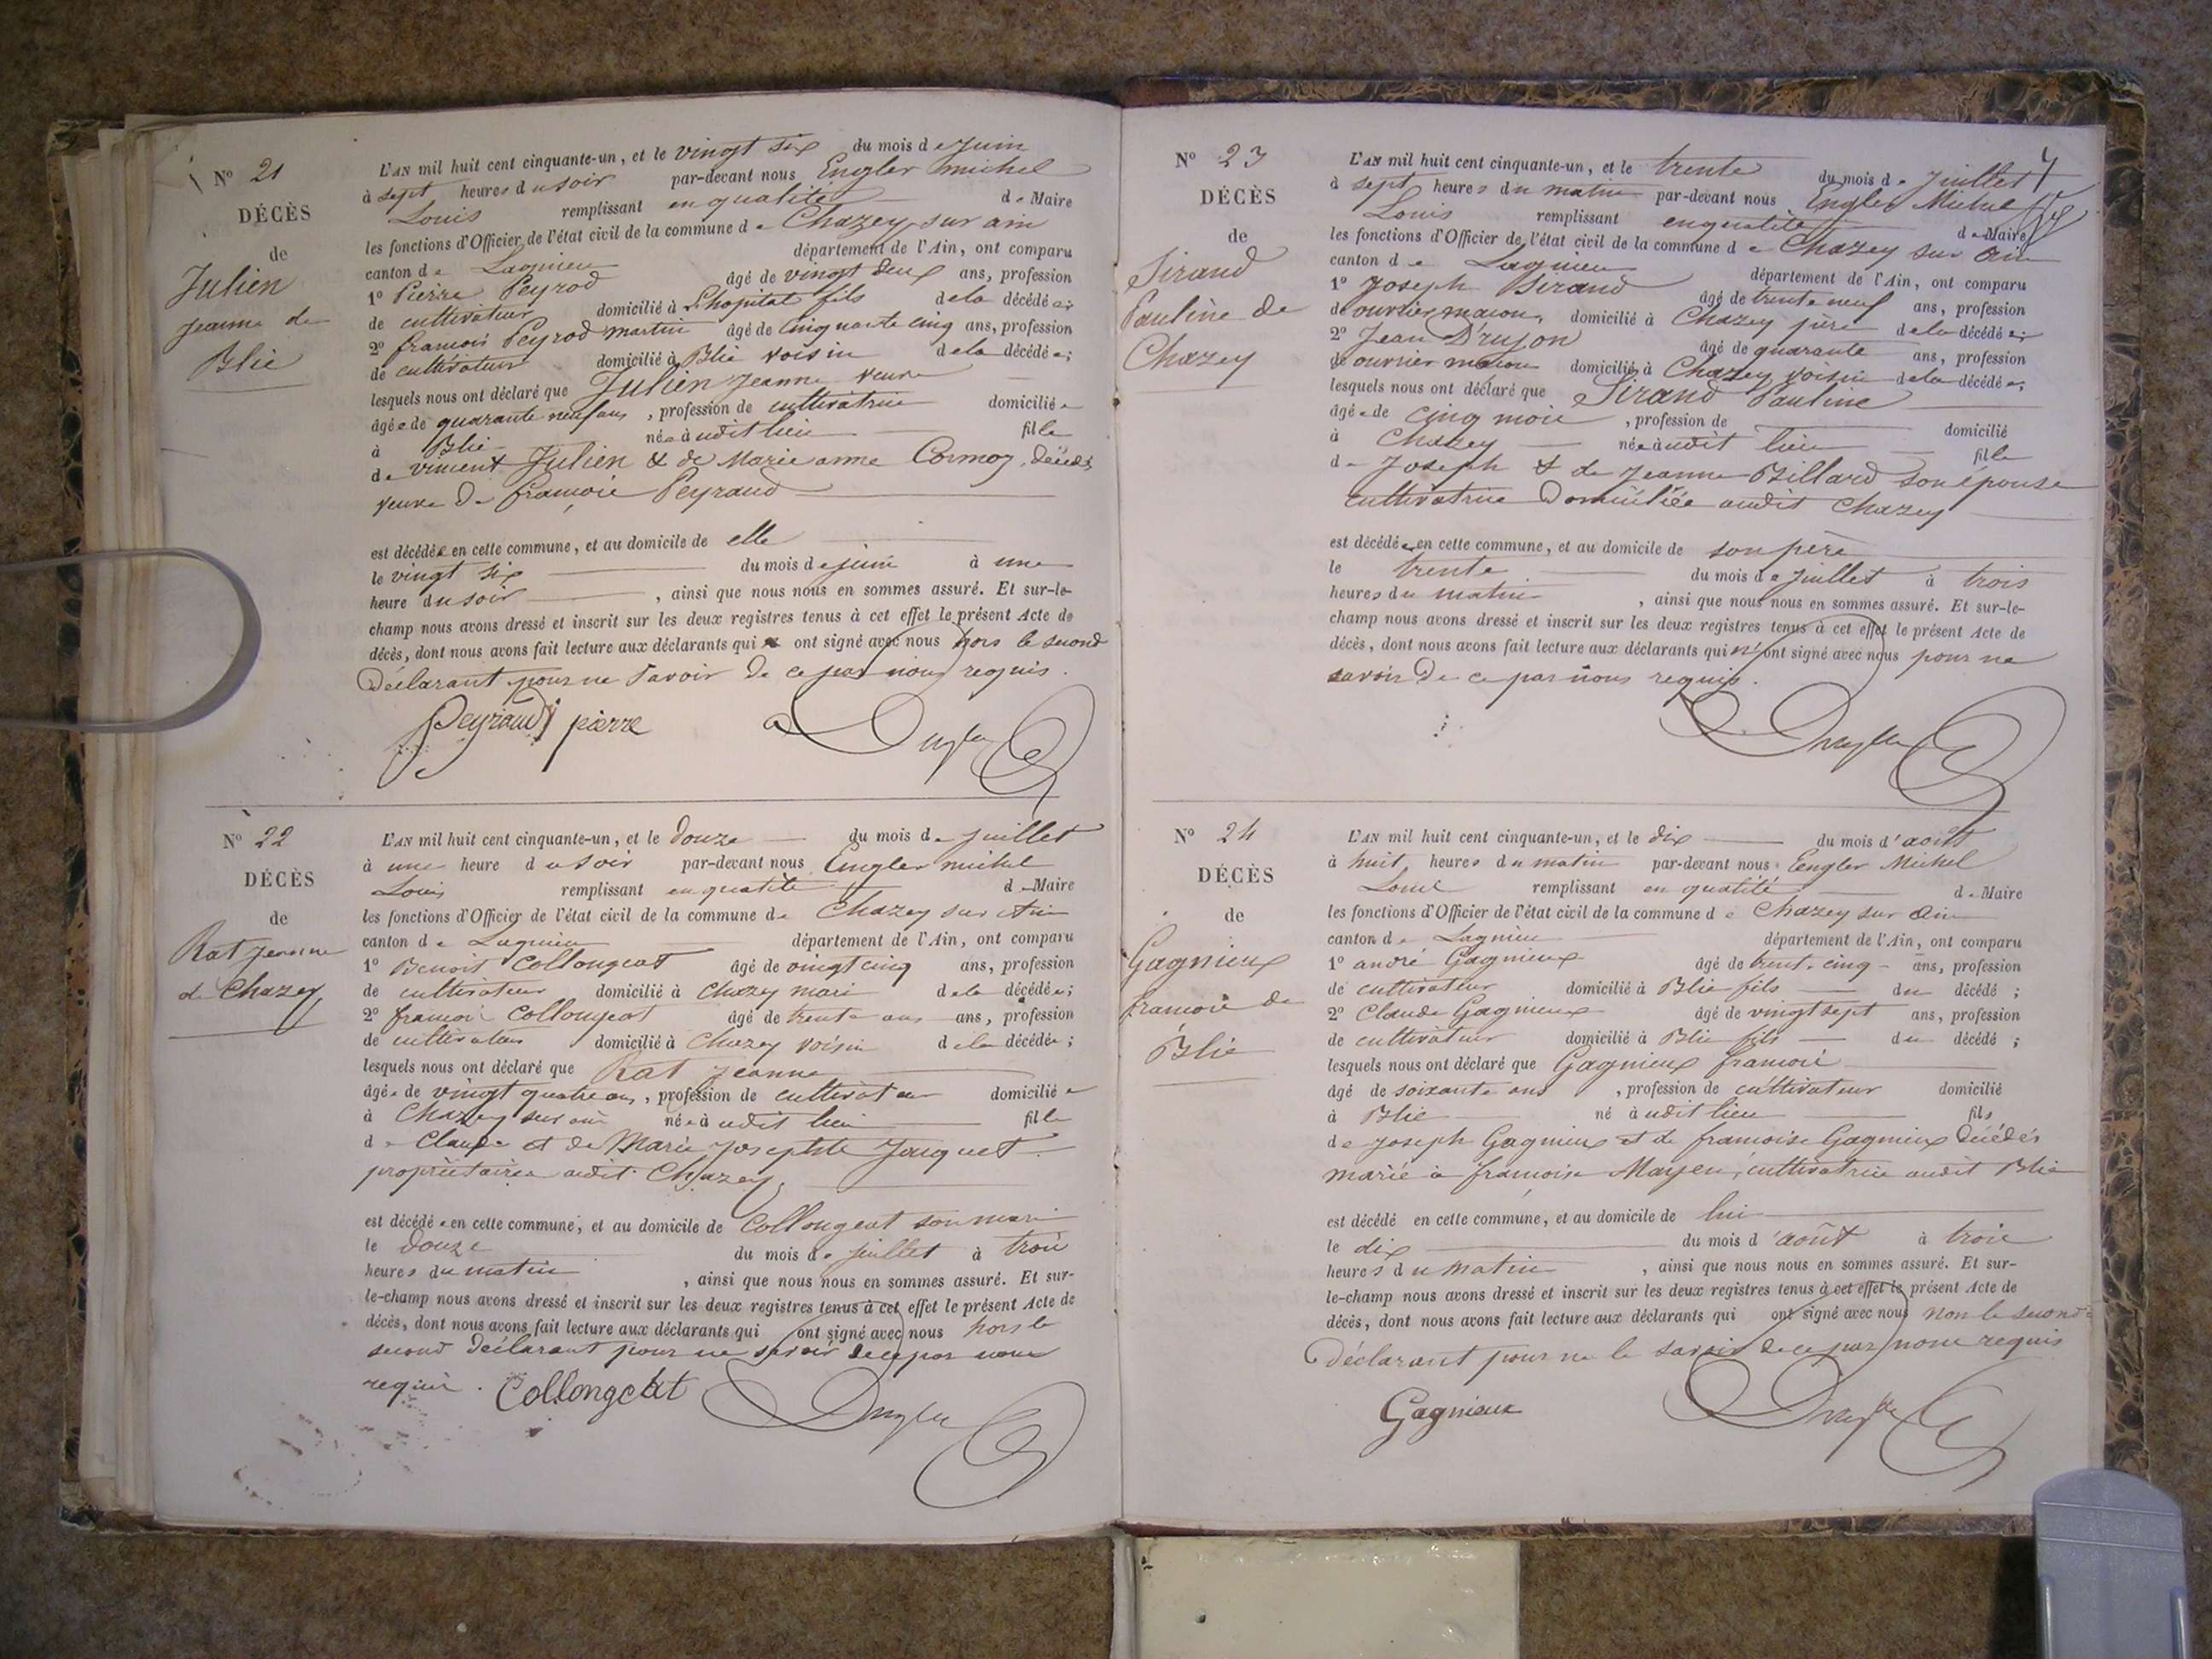 N° 21
DÉCÈS
de
Julien
Jeanne de
Blie
L'AN mil huit cent cinquante-un, et le vingt six du mois de Juin
à sept heures du soir par-devant nous Engler Michel
Louis remplissant en qualité de Maire
les fonctions d'Officier de l'état civil de la commune de Chazey sur ain
canton de Lagnieu département de l'Ain, ont comparu
1° Pierre Peyrod âgé de vingt deux ans, profession
de cultivateur domicilié à L'hopital fils de la décédée;
2° francois Peyrod martin âgé de Cinquante cinq ans, profession
de cultivateur domicilié à Blie voisin de la décédée;
lesquels nous ont déclaré que Julien Jeanne veuve
âgée de quarante neuf ans, profession de cultivatrice domiciliée
à Blie née à udit lieu fille
de vincent Julien & de Marie anne Cormoz, décédés
veuve de françois Peyraud
est décédée en cette commune, et au domicile de elle
le vingt six du mois de juin à une
heure du soir, ainsi que nous nous en sommes assuré. Et sur-le-
champ nous avons dressé et inscrit sur les deux registres tenus à cet effet le présent Acte de
décès, dont nous avons fait lecture aux déclarants qui ont signé avec nous hors le second
Déclarant pour ne savoir de ce par nous requis.
Peyraud pierre Engler
N° 22
DÉCÈS
de
Rat Jeanne
de Chazey
L'AN mil huit cent cinquante-un, et le douze du mois de juillet
à une heure du soir par-devant nous Engler michel
Louis remplissant en qualité de Maire
les fonctions d'Officier de l'état civil de la commune de Chazey sur Ain
canton de Lagnieu département de l'Ain, ont comparu
1° Benoit Collongeat âgé de vingt cinq ans, profession
de cultivateur domicilié à Chazey mari de la décédée;
2° francois Collongeat âgé de trente ans ans, profession
de cultivateur domicilié à Chazey voisin de la décédée;
lesquels nous ont déclaré que Rat Jeanne
âgée de vingt quatre ans, profession de domiciliée
à Chazey sur ain née à udit lieu fille
de Claude et de Marie Josephte Jacquet
propriétaires audit Chazey,
est décédée en cette commune, et au domicile de Collongeat son mari
le douze du mois de juillet à trois
heures du matin, ainsi que nous nous en sommes assuré. Et sur-
le-champ nous avons dressé et inscrit sur les deux registres tenus à cet effet le présent Acte de
décès, dont nous avons fait lecture aux déclarants qui ont signé avec nous hors le
second déclarant pour ne savoir de ce par nous
requis. Collongeat Engler
N° 23
DÉCÈS
de
Sirand
Pauline de
Chazey
L'AN mil huit cent cinquante-un, et le trente du mois de Juillet
à sept heures du matin par-devant nous Engler Michel
Louis remplissant en qualité de Maire
les fonctions d'Officier de l'état civil de la commune de Chazey sur Ain
canton de Lagnieu département de l'Ain, ont comparu
1° Joseph Sirand âgé de trente neuf ans, profession
de ouvrier macon, domicilié à Chazey père de la décédée;
2° Jean Drujon âgé de quarante ans, profession
de ouvrier macon domicilié à Chazey voisin de la décédée;
lesquels nous ont déclaré que Sirand Pauline
âgée de cinq mois, profession de domicilié
à Chazey née à udit lieu fille
de Joseph & de Jeanne Billard son épouse
cultivatrice Domiciliée audit Chazey
est décédée en cette commune, et au domicile de son père
le trente du mois de juillet à trois
heures du matin, ainsi que nous nous en sommes assuré. Et sur-le-
champ nous avons dressé et inscrit sur les deux registres tenus à cet effet le présent Acte de
décès, dont nous avons fait lecture aux déclarants qui n'ont signé avec nous pour ne
savoir de ce par nous requis.
Engler
N° 24
DÉCÈS
de
Gagnieux
francois de
Blie
L'AN mil huit cent cinquante-un, et le dix du mois d'août
à huit heures du matin par-devant nous Engler Michel
Louis remplissant en qualité de Maire
les fonctions d'Officier de l'état civil de la commune de Chazey sur Ain
canton de Lagnieu département de l'Ain, ont comparu
1° andré Gagnieux âgé de trente cinq ans, profession
de cultivateur domicilié à Blie fils du décédé;
2° Claude Gagnieux âgé de vingt sept ans, profession
de cultivateur domicilié à Blie fils du décédé;
lesquels nous ont déclaré que Gagnieux francois
âgé de soixante ans, profession de cultivateur domicilié
à Blie né à udit lieu fils
de Joseph Gagnieux et de francoise Gagnieux décédés
marié à francoise Mayen, cultivatrice audit Blie
est décédé en cette commune, et au domicile de lui
le dix du mois d'août à trois
heures du matin, ainsi que nous nous en sommes assuré. Et sur-
le-champ nous avons dressé et inscrit sur les deux registres tenus à cet effet le présent Acte de
décès, dont nous avons fait lecture aux déclarants qui ont signé avec nous non le second
déclarant pour ne le savoir de ce par nous requis
Gagnieux Engler